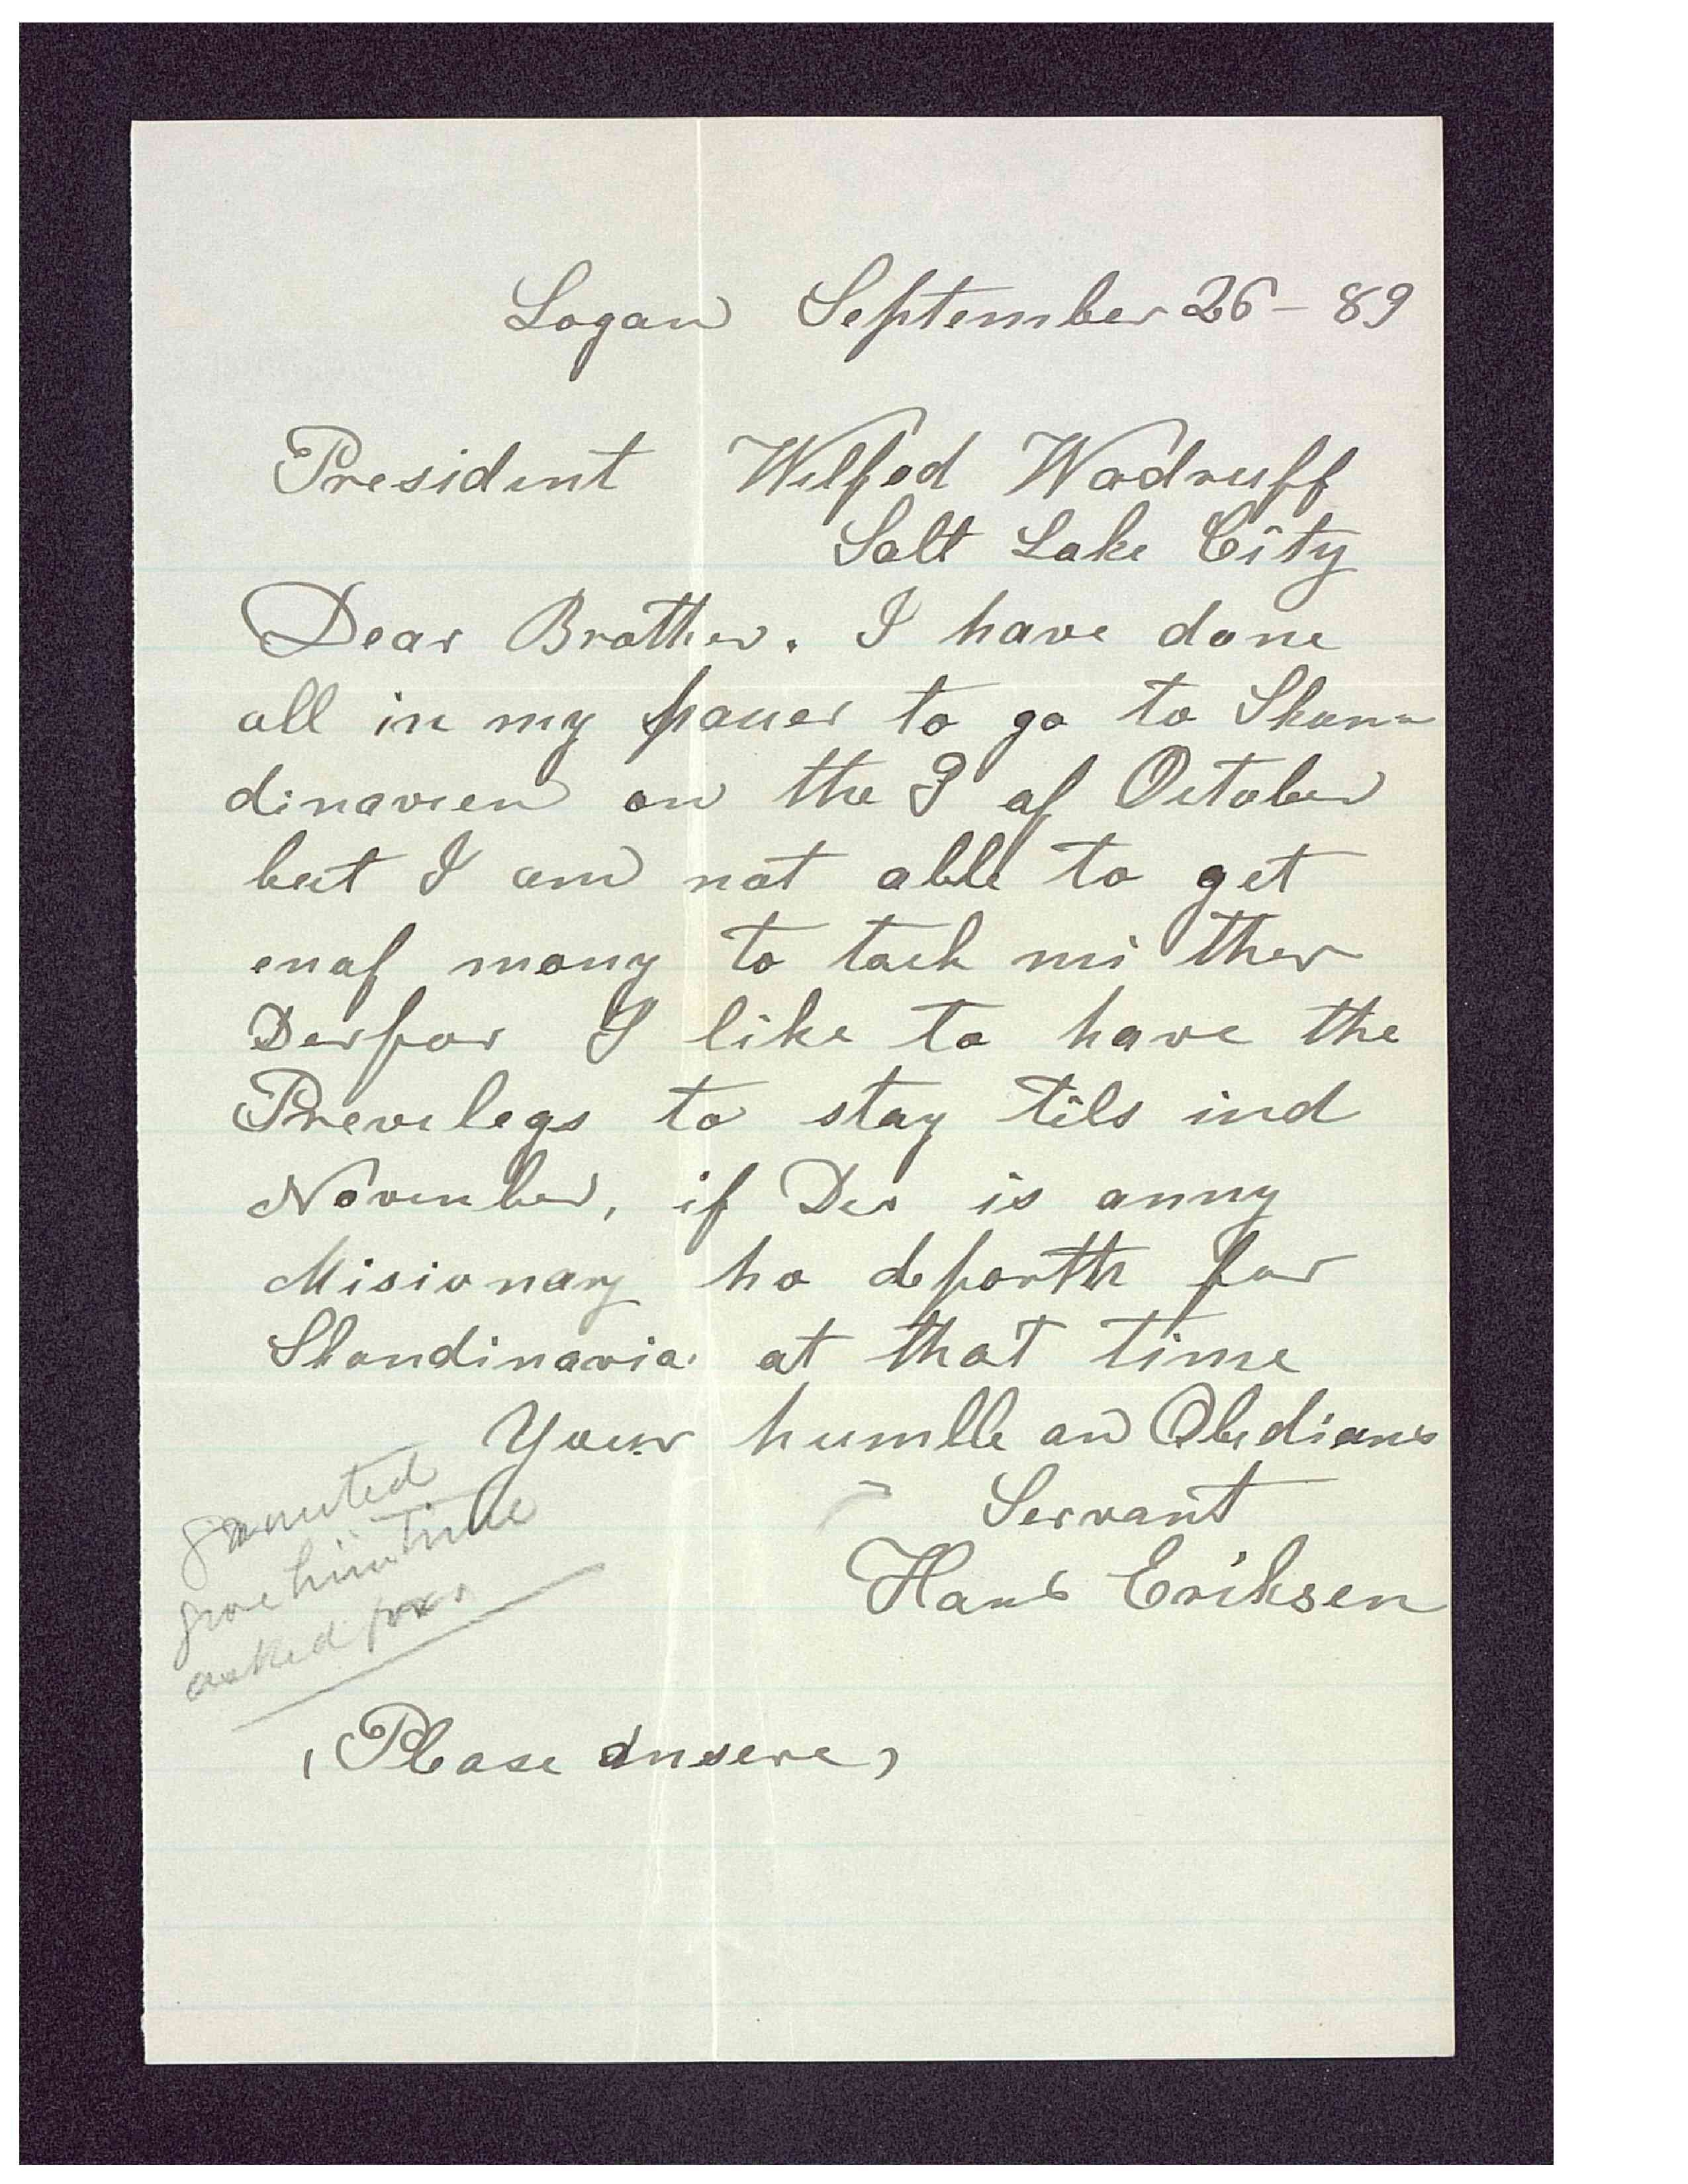 Logan September 26 - 89
President Wilfod Wodruff
Salt Lake City
Dear Brother. I have done
all in my pauer to go to Skan=
dinavien on the 3 of October
but I am not able to get
enaf mony to tack mi ther
Derfor I like to have the
Prevelegs to stay tils ind
November, if Der is anny
Misionary ho departh for
Skandinavia at that time
Your humble an Obedians
Servant
Hans Eriksen
granted
give him time
asked for.
(Please Ansere)